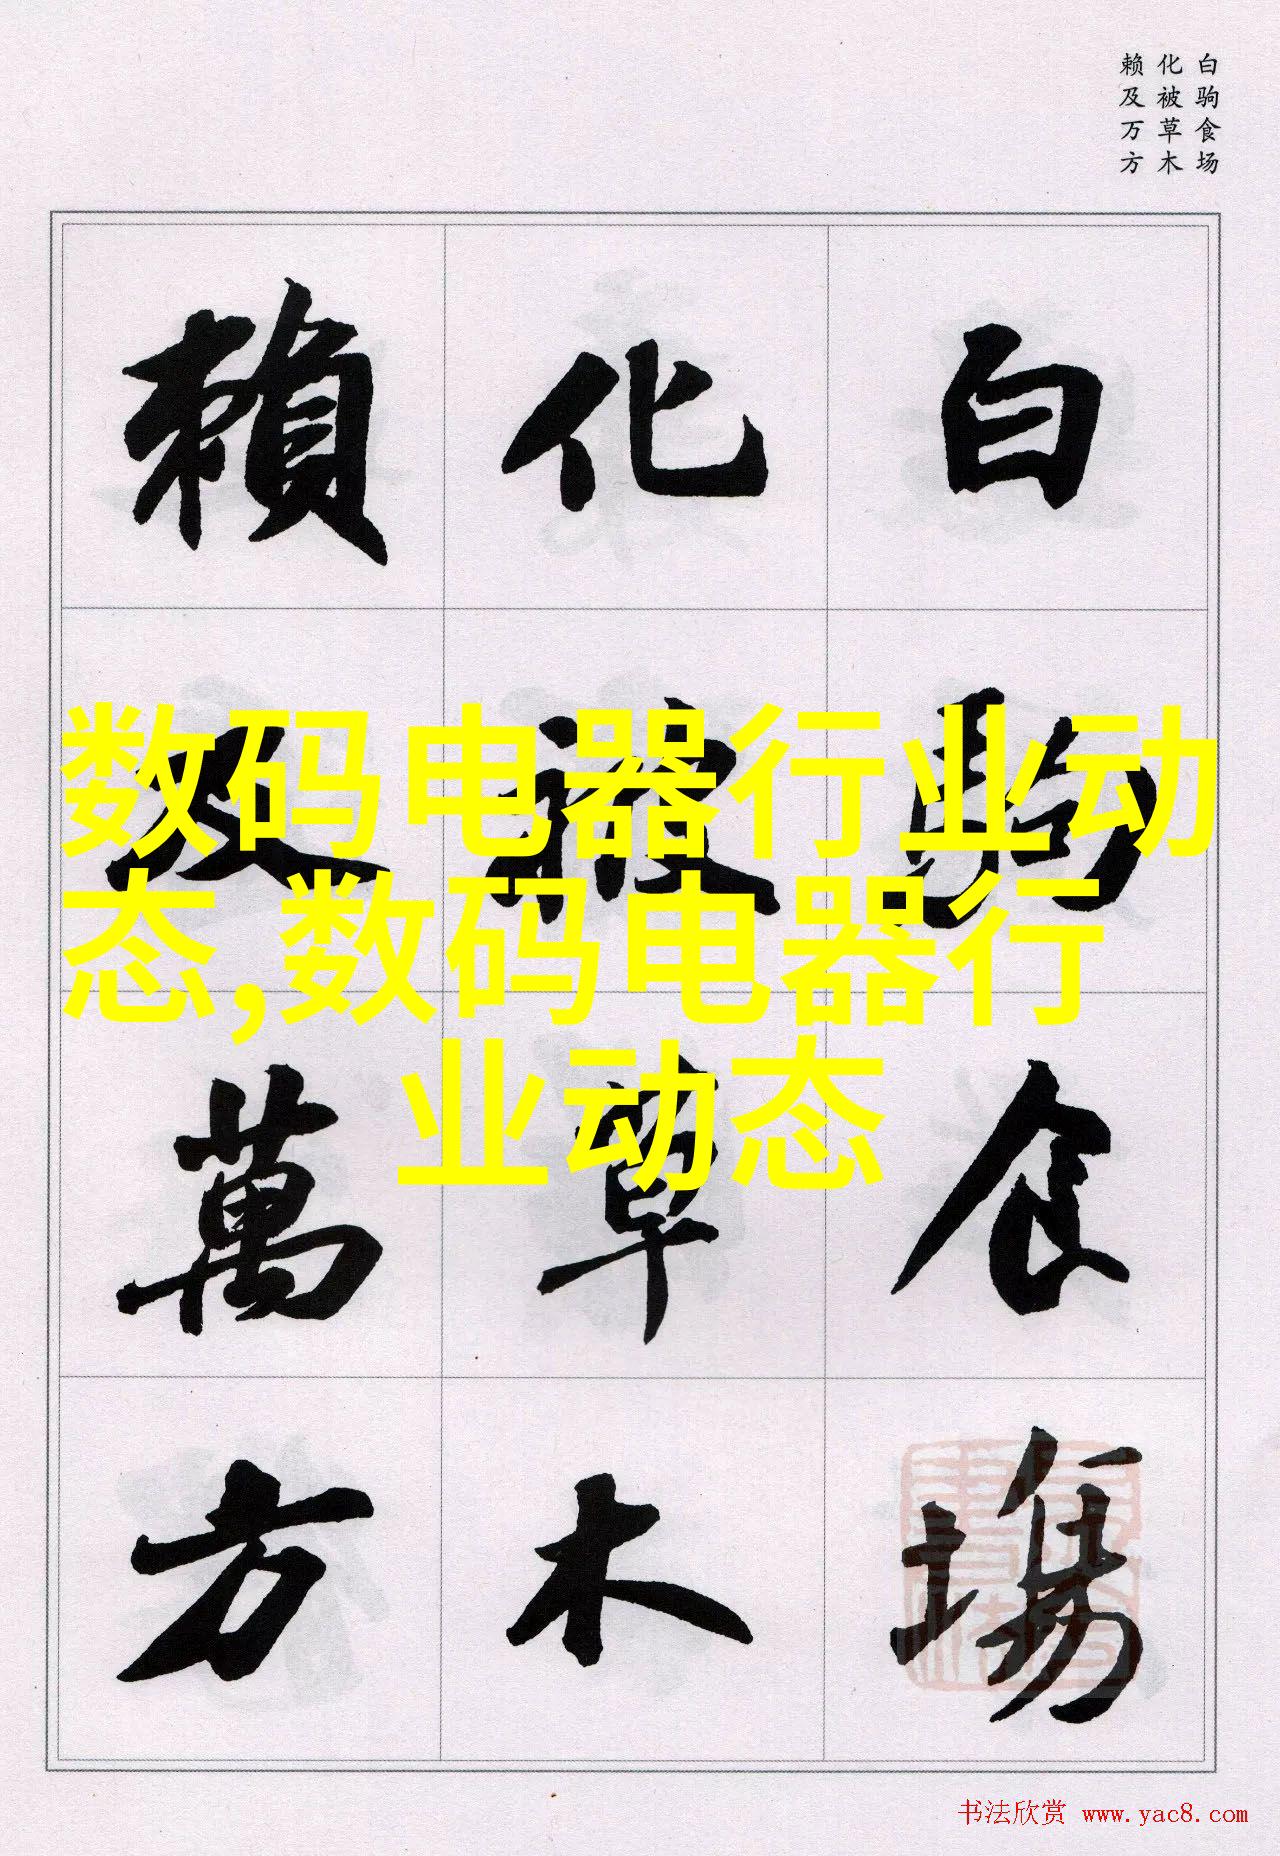 白驹食场
化被草木
赖及万方
白駒食場
化被草木
賴及萬方
数码电器行业动
态,数码电器行
业动态
书法欣赏 www.yac8.com